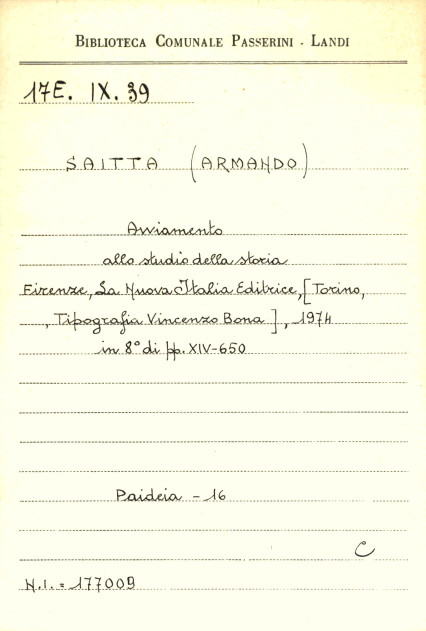 BIBLIOTECA COMUNALE PASSERINI - LANDI
17E. IX. 39
SAITTA (ARMANDO)
Avviamento
allo studio della storia
Firenze, La Nuova Italia Editrice, [Torino,
, Tipografia Vincenzo Bona], 1974
in 8° di pp. XIV-650
Paideia - 16
C
N.I. = 177009